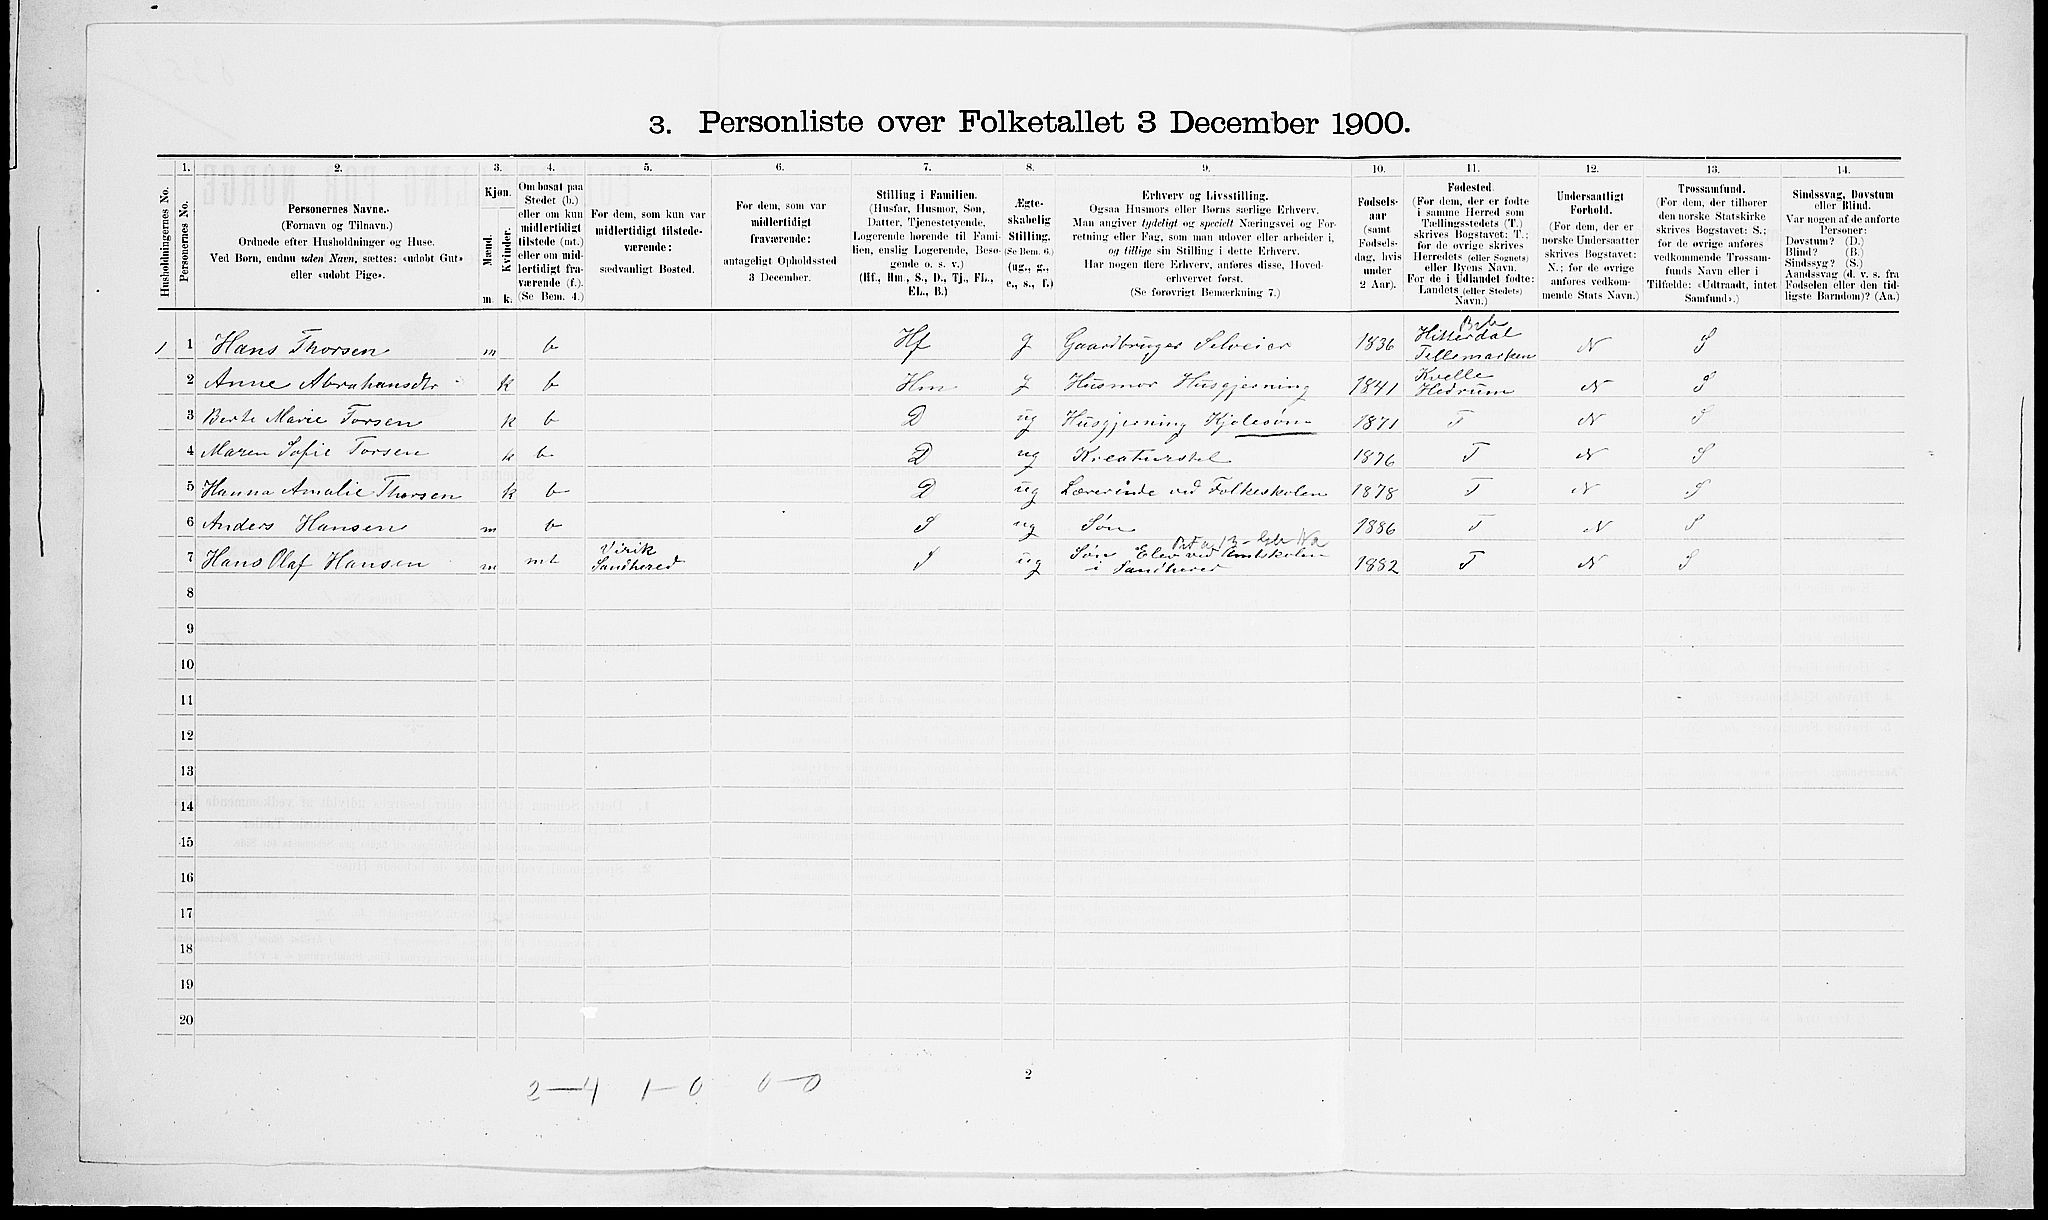 3. Personliste over Folketallet 3 December 1900.
1. 2. 3. 4. 5. 6. 7. 8. 9. 10. 11. 12. 13. 14.
Husholdningernes No.
Personernes No.
Personernes Navne.
(Fornavn og Tilnavn.)
Ordnede efter Husholdninger og Huse.
Ved Børn, endnu uden Navn, sættes: «udøbt Gut»
eller «udøbt Pige».
Kjøn.
Mænd.
Kvinder.
m. k.
Om bosat paa
Stedet (b.)
eller om kun
midlertidigt
tilstede (mt.)
eller om mid-
lertidigt fra-
værende (f.).
(Se Bem. 4.)
For dem, som kun var
midlertidigt tilstede-
værende:
sædvanligt Bosted.
For dem, som var
midlertidigt
fraværende:
antageligt Opholdssted
3 December.
Stilling i Familien.
(Husfar, Husmor, Søn,
Datter, Tjenestetyende,
Logerende hørende til Fami-
lien, enslig Logerende, Besø-
gende o. s. v.)
(Hf., Hm., S., D., Tj., FL.,
EL., B.)
Ægte-
skabelig
Stilling.
(Se Bem. 6.)
(ug., g.,
e., s., f.)
Erhverv og Livsstilling.
Ogsaa Husmors eller Børns særlige Erhverv.
Man angiver tydeligt og specielt Næringsvei og For-
retning eller Fag, som man udøver eller arbeider i,
og tillige sin Stilling i dette Erhverv.
Har nogen flere Erhverv, anføres disse, Hoved-
erhvervet først.
(Se forøvrigt Bemærkning 7.)
Fødsels-
aar
(samt
Fødsels-
dag, hvis
under
2 Aar).
Fødested.
(For dem, der er fødte
i samme Herred som
Tællingsstedets (T.)
skrives Bogstavet: T.;
for de øvrige skrives
Herredets (eller Sognets)
eller Byens Navn.
For de i Udlandet fødte:
Landets (eller Stedets)
Navn.)
Undersaatligt
Forhold.
(For dem, der er
norske Undersaatter
skrives Bogstavet:
N.; for de øvrige
anføres vedkom-
mende Stats Navn.)
Trossamfund.
(For dem, der tilhører
den norske Statskirke
skrives Bogstavet: S.;
for de øvrige anføres
vedkommende Trossam-
funds Navn eller i
Tilfælde: «Udtraadt, intet
Samfund».)
Sindssvag, Døvstum
eller Blind.
Var nogen af de anførte
Personer:
Døvstum? (D.)
Blind? (B.)
Sindssyg? (S.)
Aandssvag (d. v. s. fra
Fødselen eller den tid-
ligste Barndom)? (Aa.)
1 1 Hans Thorsen m b Hf g Gaardbruger Selveier 1836 Hitterdal Tellemarken N S
2 Anne Abrahansdtr k b Hm g Husmor Husgjerning 1841 Kvelle Hedrum N S
3 Berte Marie Torsen k b D ug Husgjerning Kjolesøm 1871 T N S
4 Maren Sofie Torsen k b D ug Kreaturstel 1876 T N S
5 Hanna Amalie Thorsen k b D ug Lærerinde ved Folkeskolen 1878 T N S
6 Anders Hansen m b S ug Søn 1886 T N S
7 Hans Olaf Hansen m mt Virik Sandherred S ug Søn Elev ved Amtskolen i Sandherred 1882 T N S
8
9
10
11
12
13
14
15
16
17
18
19
20
2
2—4 1—0 0—0